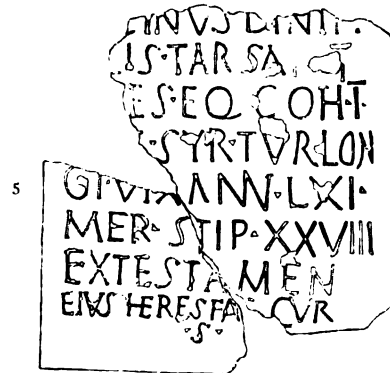 INVS DINI
IS·TARSA
ES·EQ COH·I·
SYR·TVRLON
5 GI·VIX ANN·LXI·
MER·STIP·XXVIII
EX TESTAMEN
EIVS HERES FA CVR
·S·